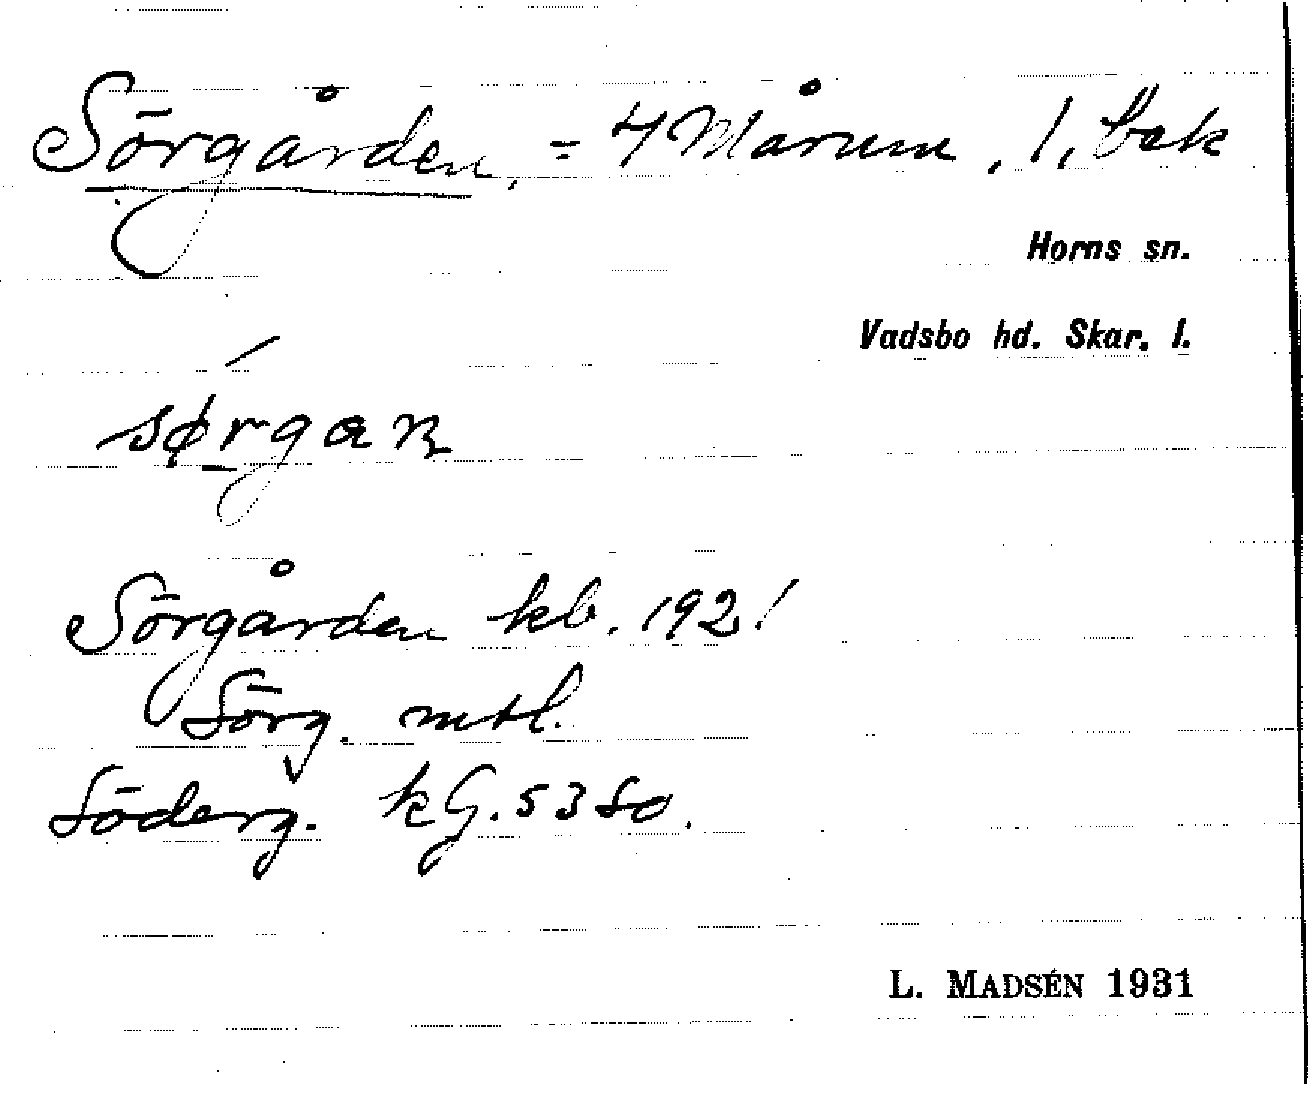 Sörgården, = 4 Mårum, 1, bek
Horns sn.
Vadsbo hd. Skar. l.
sørgaɴ
Sörgården kb. 1921
Sörg. mtl.
Söderg. kG. 53 So.
L. MADSÉN 1931